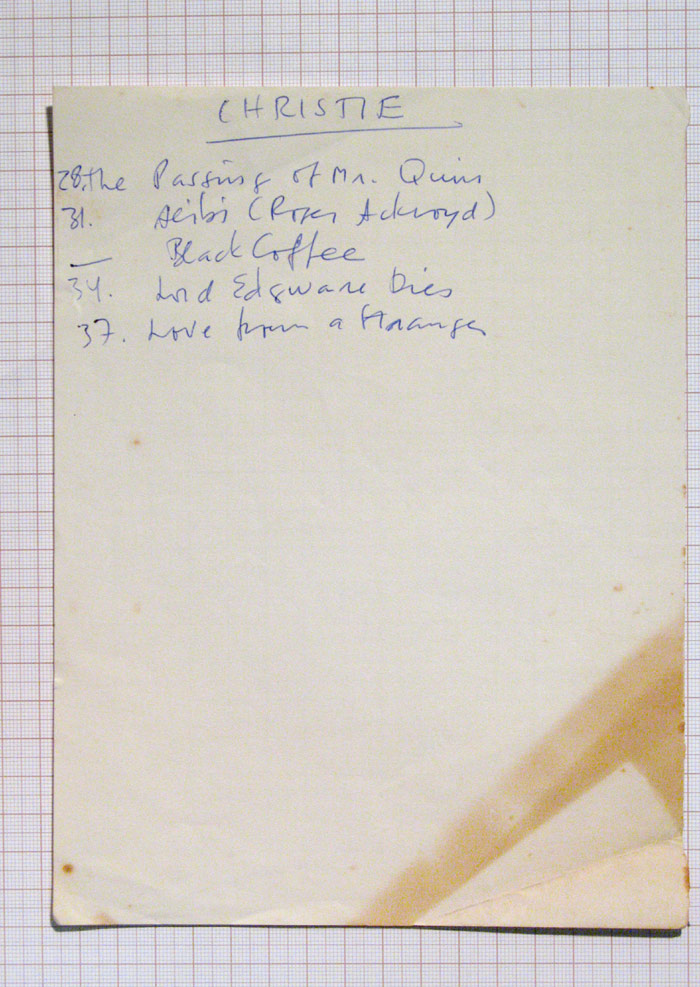 CHRISTIE
28. the Passing of Mr. Quinn
31. Alibi (Roger Ackroyd)
— Black Coffee
34. Lord Edgware Dies
37. Love from a Stranger